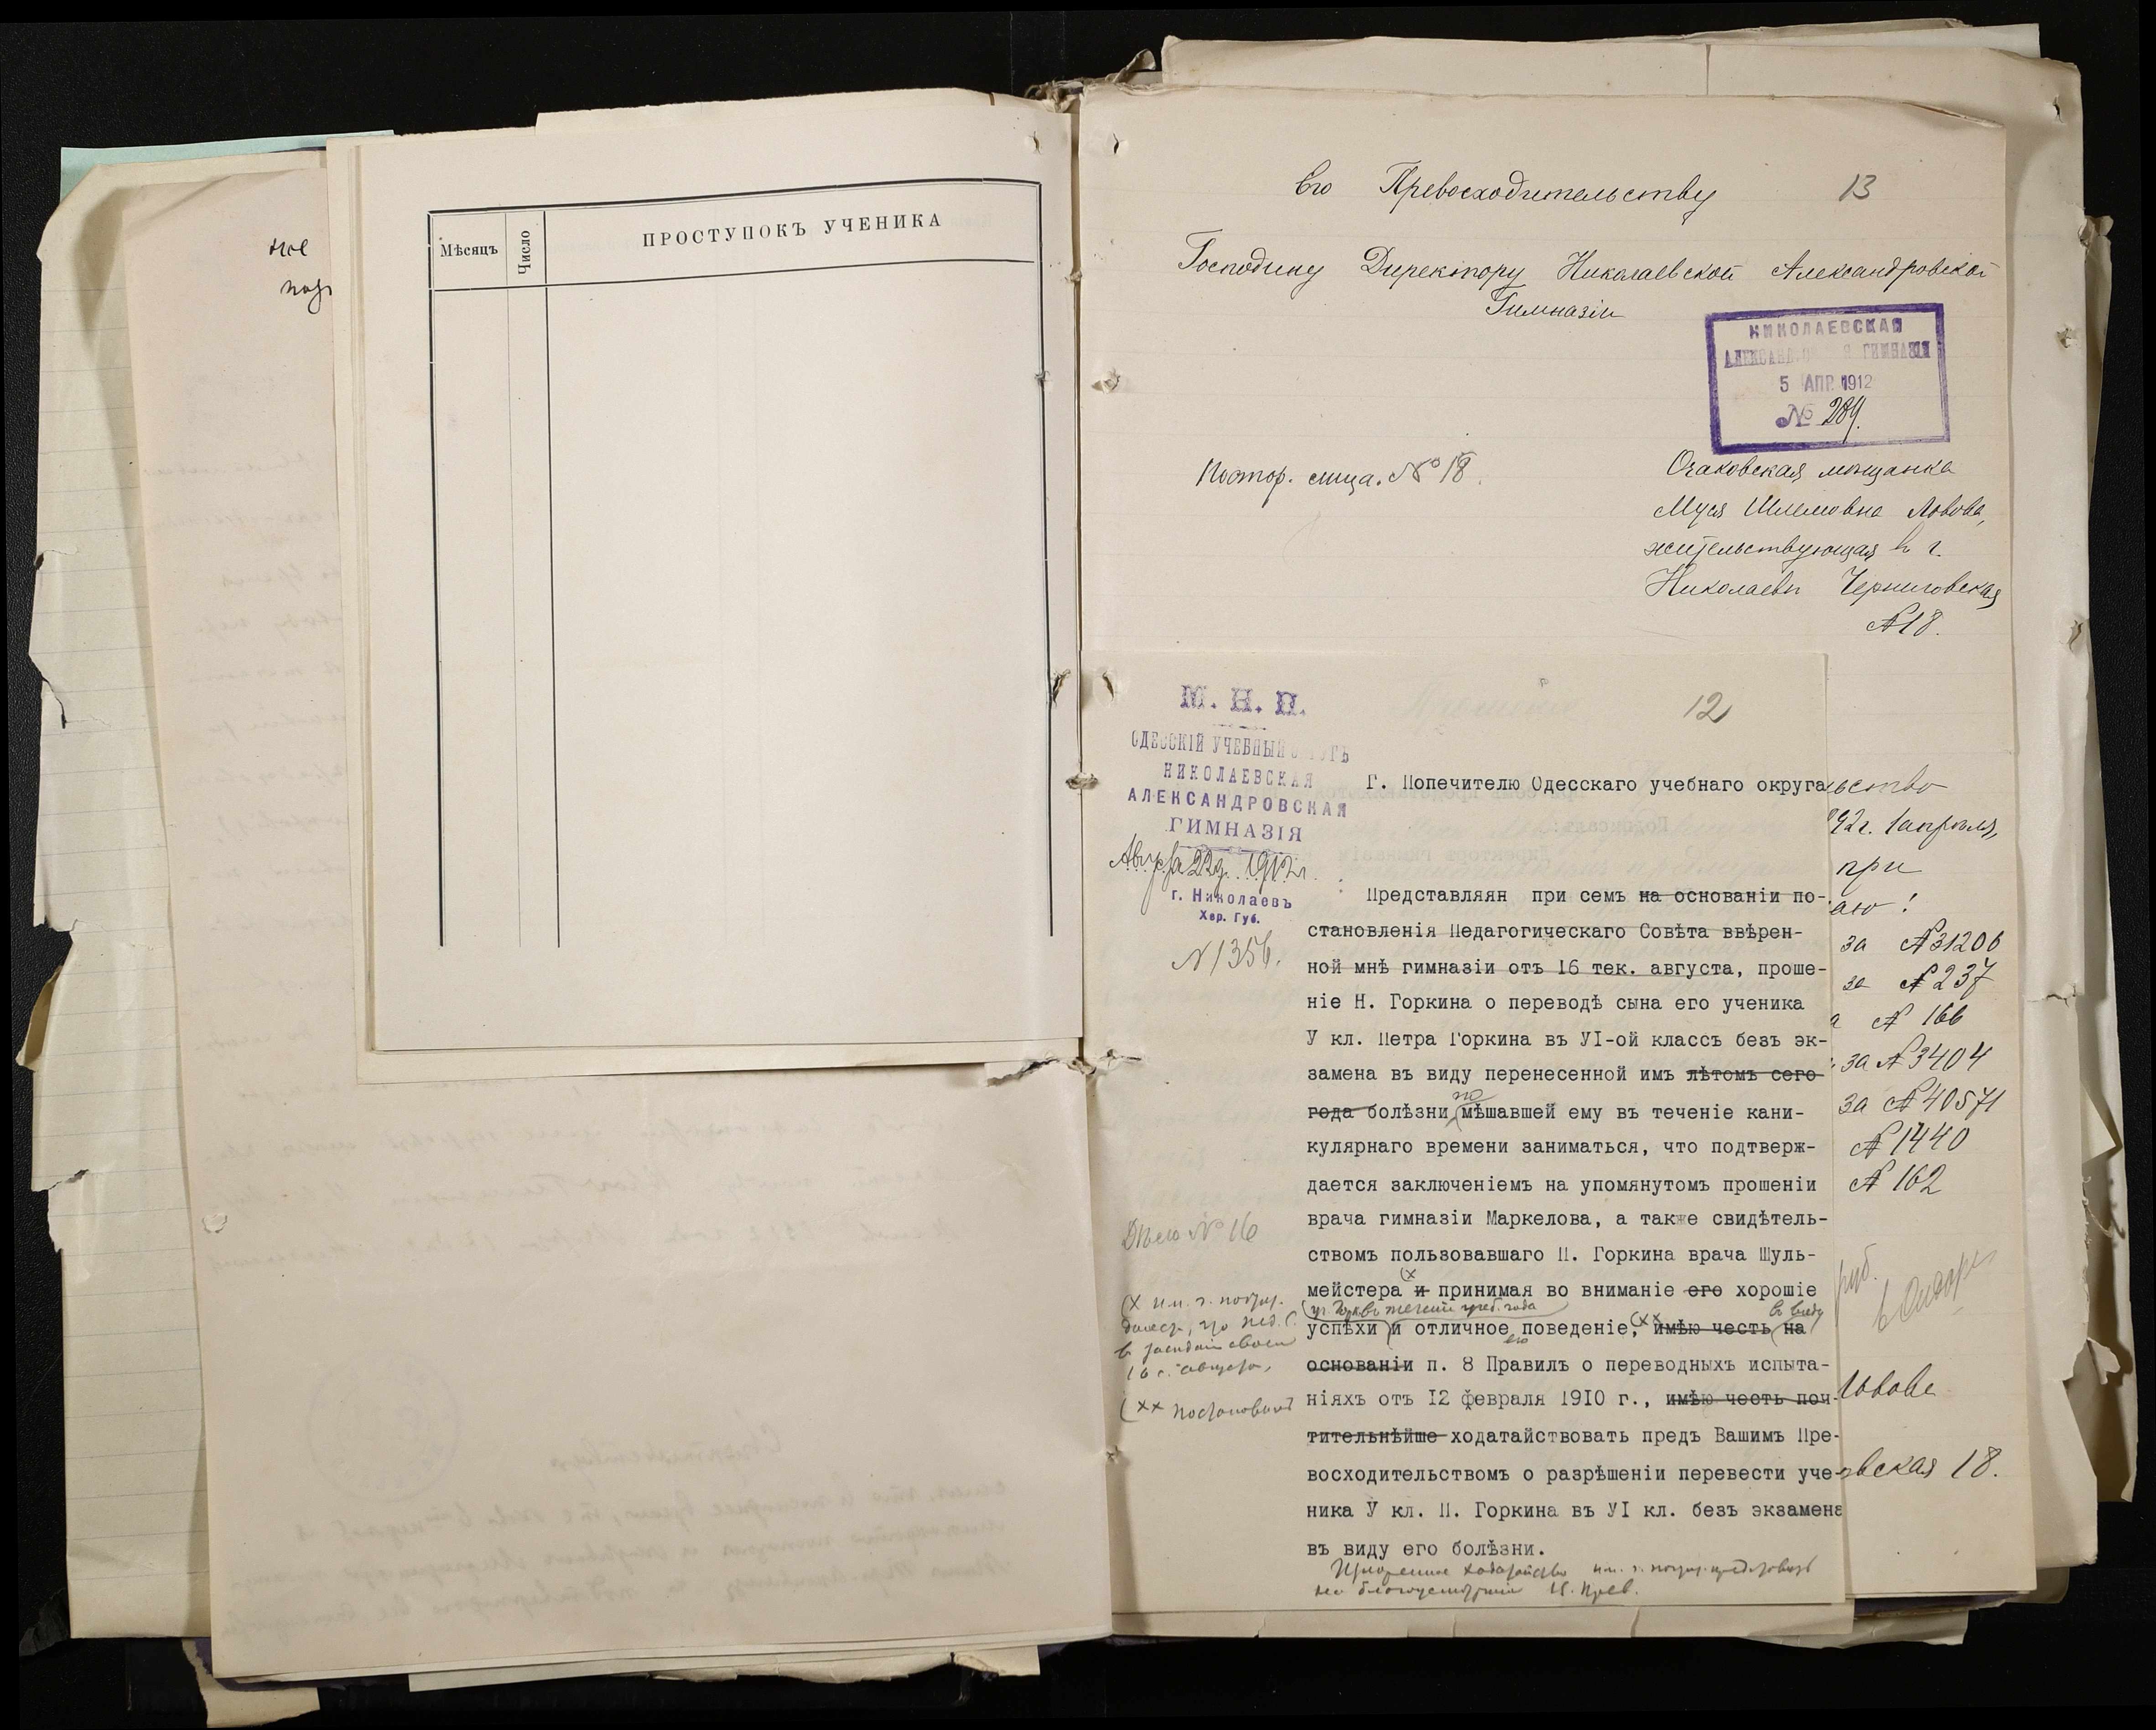 не
Мѣсяцъ
Число
ПРОСТУПОКЪ УЧЕНИКА
Его Превосходительству
13
Господину Директору Николаевской Александровской
Гимназіи
НИКОЛАЕВСКАЯ
АЛЕКСАНДРОВСКАЯ ГИМНАЗІЯ
5 АПР. 1912
№ 289.
Постор. лица. № 18.
Очаковская мѣщанка
Муся Шлемовна Львова,
жительствующая в г.
Николаевѣ Черниговская
№ 18.
М. Н. П.
ОДЕССКІЙ УЧЕБНЫЙ ОКРУГЪ
НИКОЛАЕВСКАЯ
АЛЕКСАНДРОВСКАЯ
ГИМНАЗІЯ
Августа 22 д. 1912 г.
г. Николаевъ
Хер. Губ.
№ 1356.
12
Г. Попечителю Одесскаго учебнаго округа
Представляян при семъ на основаніи по-
становленія Педагогическаго Совѣта ввѣрен-
ной мнѣ гимназіи отъ 16 тек. августа, проше-
ніе Н. Горкина о переводѣ сына его ученика
У кл. Петра Горкина въ УІ-ой классъ безъ эк-
замена въ виду перенесенной имъ лѣтомъ сего
года болѣзни, по
мѣшавшей ему въ теченіе кани-
кулярнаго времени заниматься, что подтверж-
дается заключеніемъ на упомянутомъ прошеніи
врача гимназіи Маркелова, а также свидѣтель-
ствомъ пользовавшаго П. Горкина врача Шуль-
мейстера (х и принимая во вниманіе его хорошіе
уч. Горк. въ теченіи учеб. года
успѣхи и отличное его поведеніе, (хх имѣю честь въ виду на
основаніи п. 8 Правилъ о переводныхъ испыта-
ніяхъ отъ 12 февраля 1910 г., имѣю честь поч-
тительнѣйше ходатайствовать предъ Вашимъ Пре-
восходительствомъ о разрѣшеніи перевести уче-
ника У кл. П. Горкина въ УІ кл. безъ экзамена
въ виду его болѣзни.
ходатайство им. ч. почт.
на В. Прев.
Дѣло № 16
(х им. ч. почт.
донести, что Пед. С.
в засѣданіи своем
16 с. августа,
(хх постановилъ
ьство
92 г. 1 апрѣля,
при
аю:
за № 31206
за № 237
а № 166
за № 3404
за № 40571
№ 1440
№ 162
руб.
Львова
овская 18.